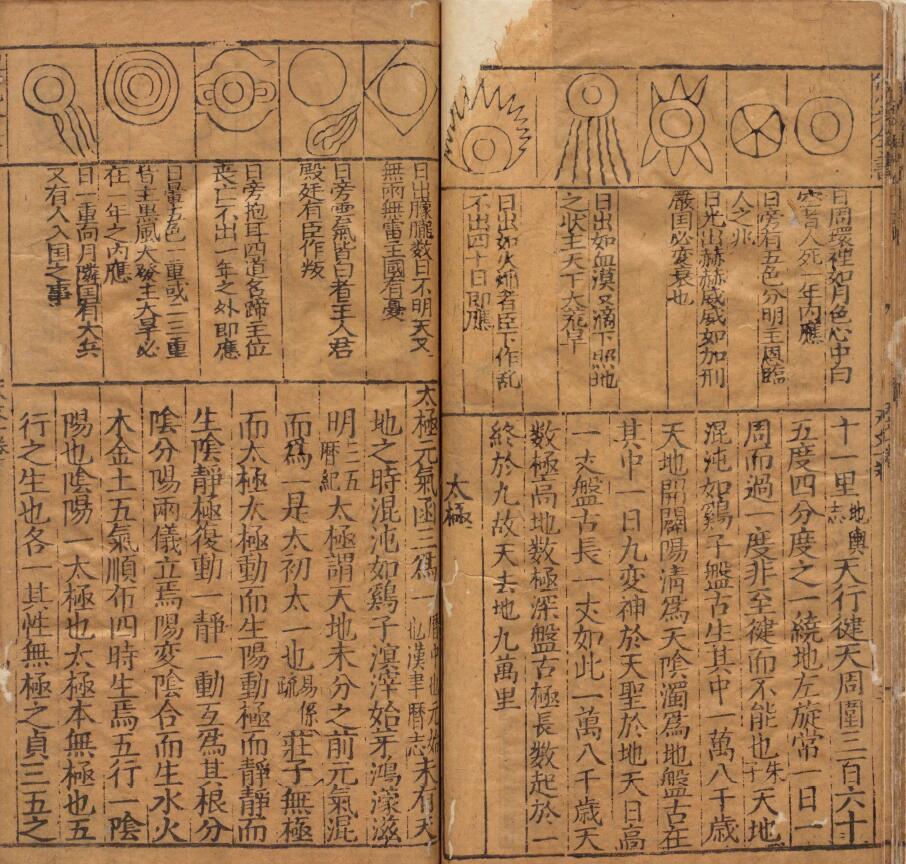 日周環裡如月色心中白
空者人死一年內應
日旁有五色分明主恩臨
人之兆
日光出赫赫威威如加刑
嚴国必變衰也
日出如血漠又滴下照地
之状主天下大荒旱
日出如火㷔者臣下作乱
不出四十日即應
十一里地輿志天行徤天周圍三百六十
五度四分度之一繞地左旋常一日一
周而過一度非至徤而不能也朱子天地
混沌如鷄子盤古生其中一萬八千歲
天地開闢陽清爲天陰濁爲地盤古在
其中一日九變神於天聖於地天日高
一丈盤古長一丈如此一萬八千歲天
数極高地数極深盤古極長数起於一
終於九故天去地九萬里
太極
日出朦朧数日不明天又
無雨無雷主國有憂
日旁雲氣皆白者主人君
殿廷有臣作叛
日旁抱耳四道名蹄主位
丧亡不出一年之外即應
日暈五色一重或二三重
皆主惠風大發主大旱必
在一年之內應
日一重向月隣国有大兵
又有人入国之事
太極元氣函三爲一漢書暦志未有天
地之時混沌如鷄子溟涬始芽鴻濛滋
明三五暦紀太極謂天地未分之前元氣混
而爲一是太初太一也易係疏莊子無極
而太極太極動而生陽動極而靜靜而
生陰靜極復動一靜一動互爲其根分
陰分陽兩儀立焉陽变陰合而生水火
木金土五氣順布四時生焉五行一陰
陽也陰陽一太極也太極本無極也五
行之生也各一其性無極之貞三五之